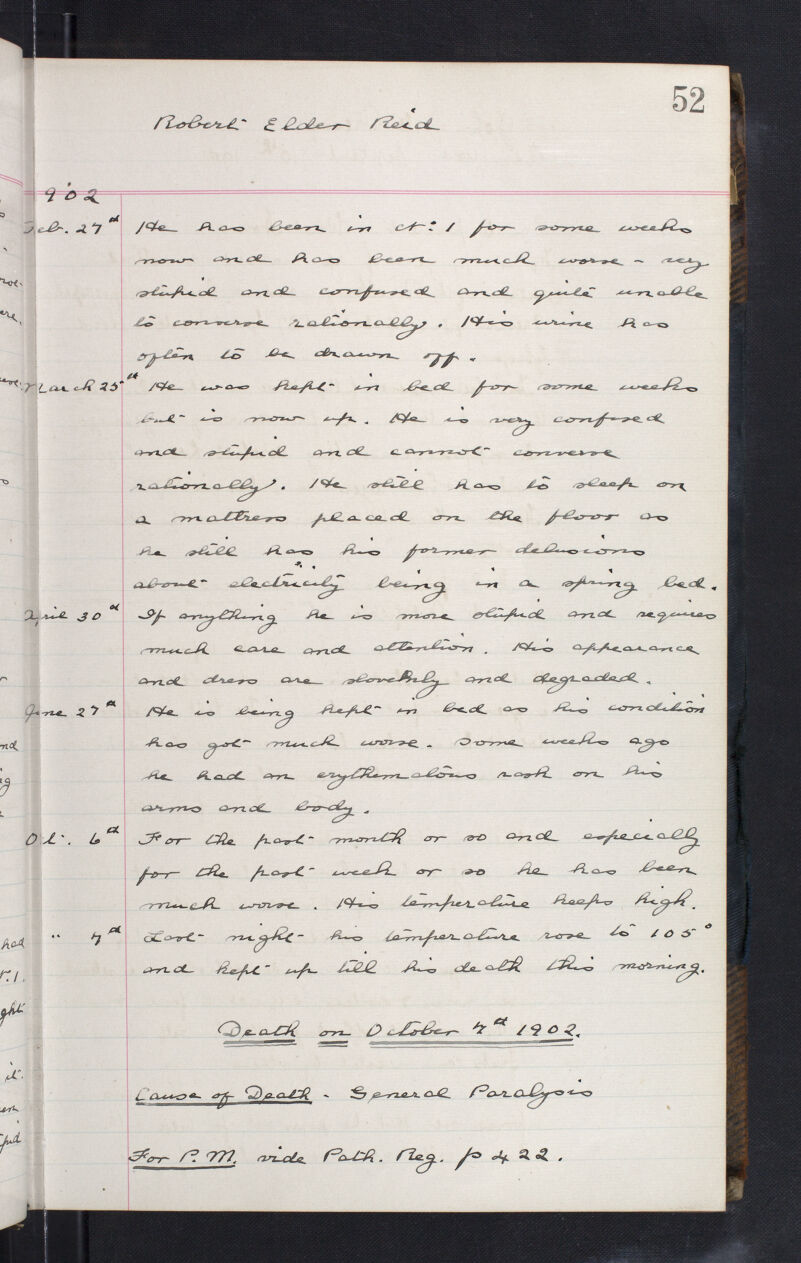 52
Robert Elder Reid
1902
Feb. 27th He has been in No: 1 for some weeks
now and has been much worse - very
stupid and confused and quite unable
to converse rationally. His urine has
often to be drawn off.
March 25th He was kept in bed for some weeks
but is now up. He is very confused
and stupid and cannot converse
rationally. He still has to sleep on
a mattress placed on the floor as
he still has his former delusions
about electricity being in a spring bed.
April 30th If anything he is more stupid and requires
much care and attention. His appearance
and dress are slovenly and degraded.
June 27th He is being kept in bed as his condition
has got much worse. Some weeks ago
he had an erythematous rash on his
arms and body.
Oct. 6th For the past month or so and especially
for the past week or so he has been
much worse. His temperature keeps high.
" 7th Last night his temperature rose to 105°
and kept up till his death this morning.
Death on October 7th 1902.
Cause of Death - General Paralysis
For P.M. vide Path. Reg. p 422.